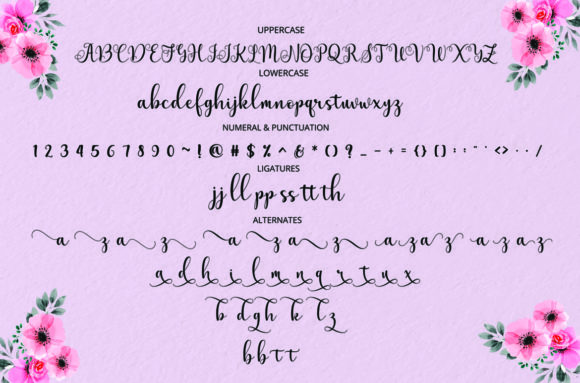 UPPERCASE
ABCDEFGHIJKLMNOPQRSTUVWXYZ
LOWERCASE
abcdefghijklmnopqrstuvwxyz
NUMERAL & PUNCTUATION
1 2 3 4 5 6 7 8 9 0 ~ ! @ # $ % ^ & * ( ) ? _ - + = { } [ ] : ; " ' < > . , /
LIGATURES
jj ll pp ss tt th
ALTERNATES
a z a z a z a z a z a z a z a z
a d h i l m n q r t u x
b d g h k l z
b b t t